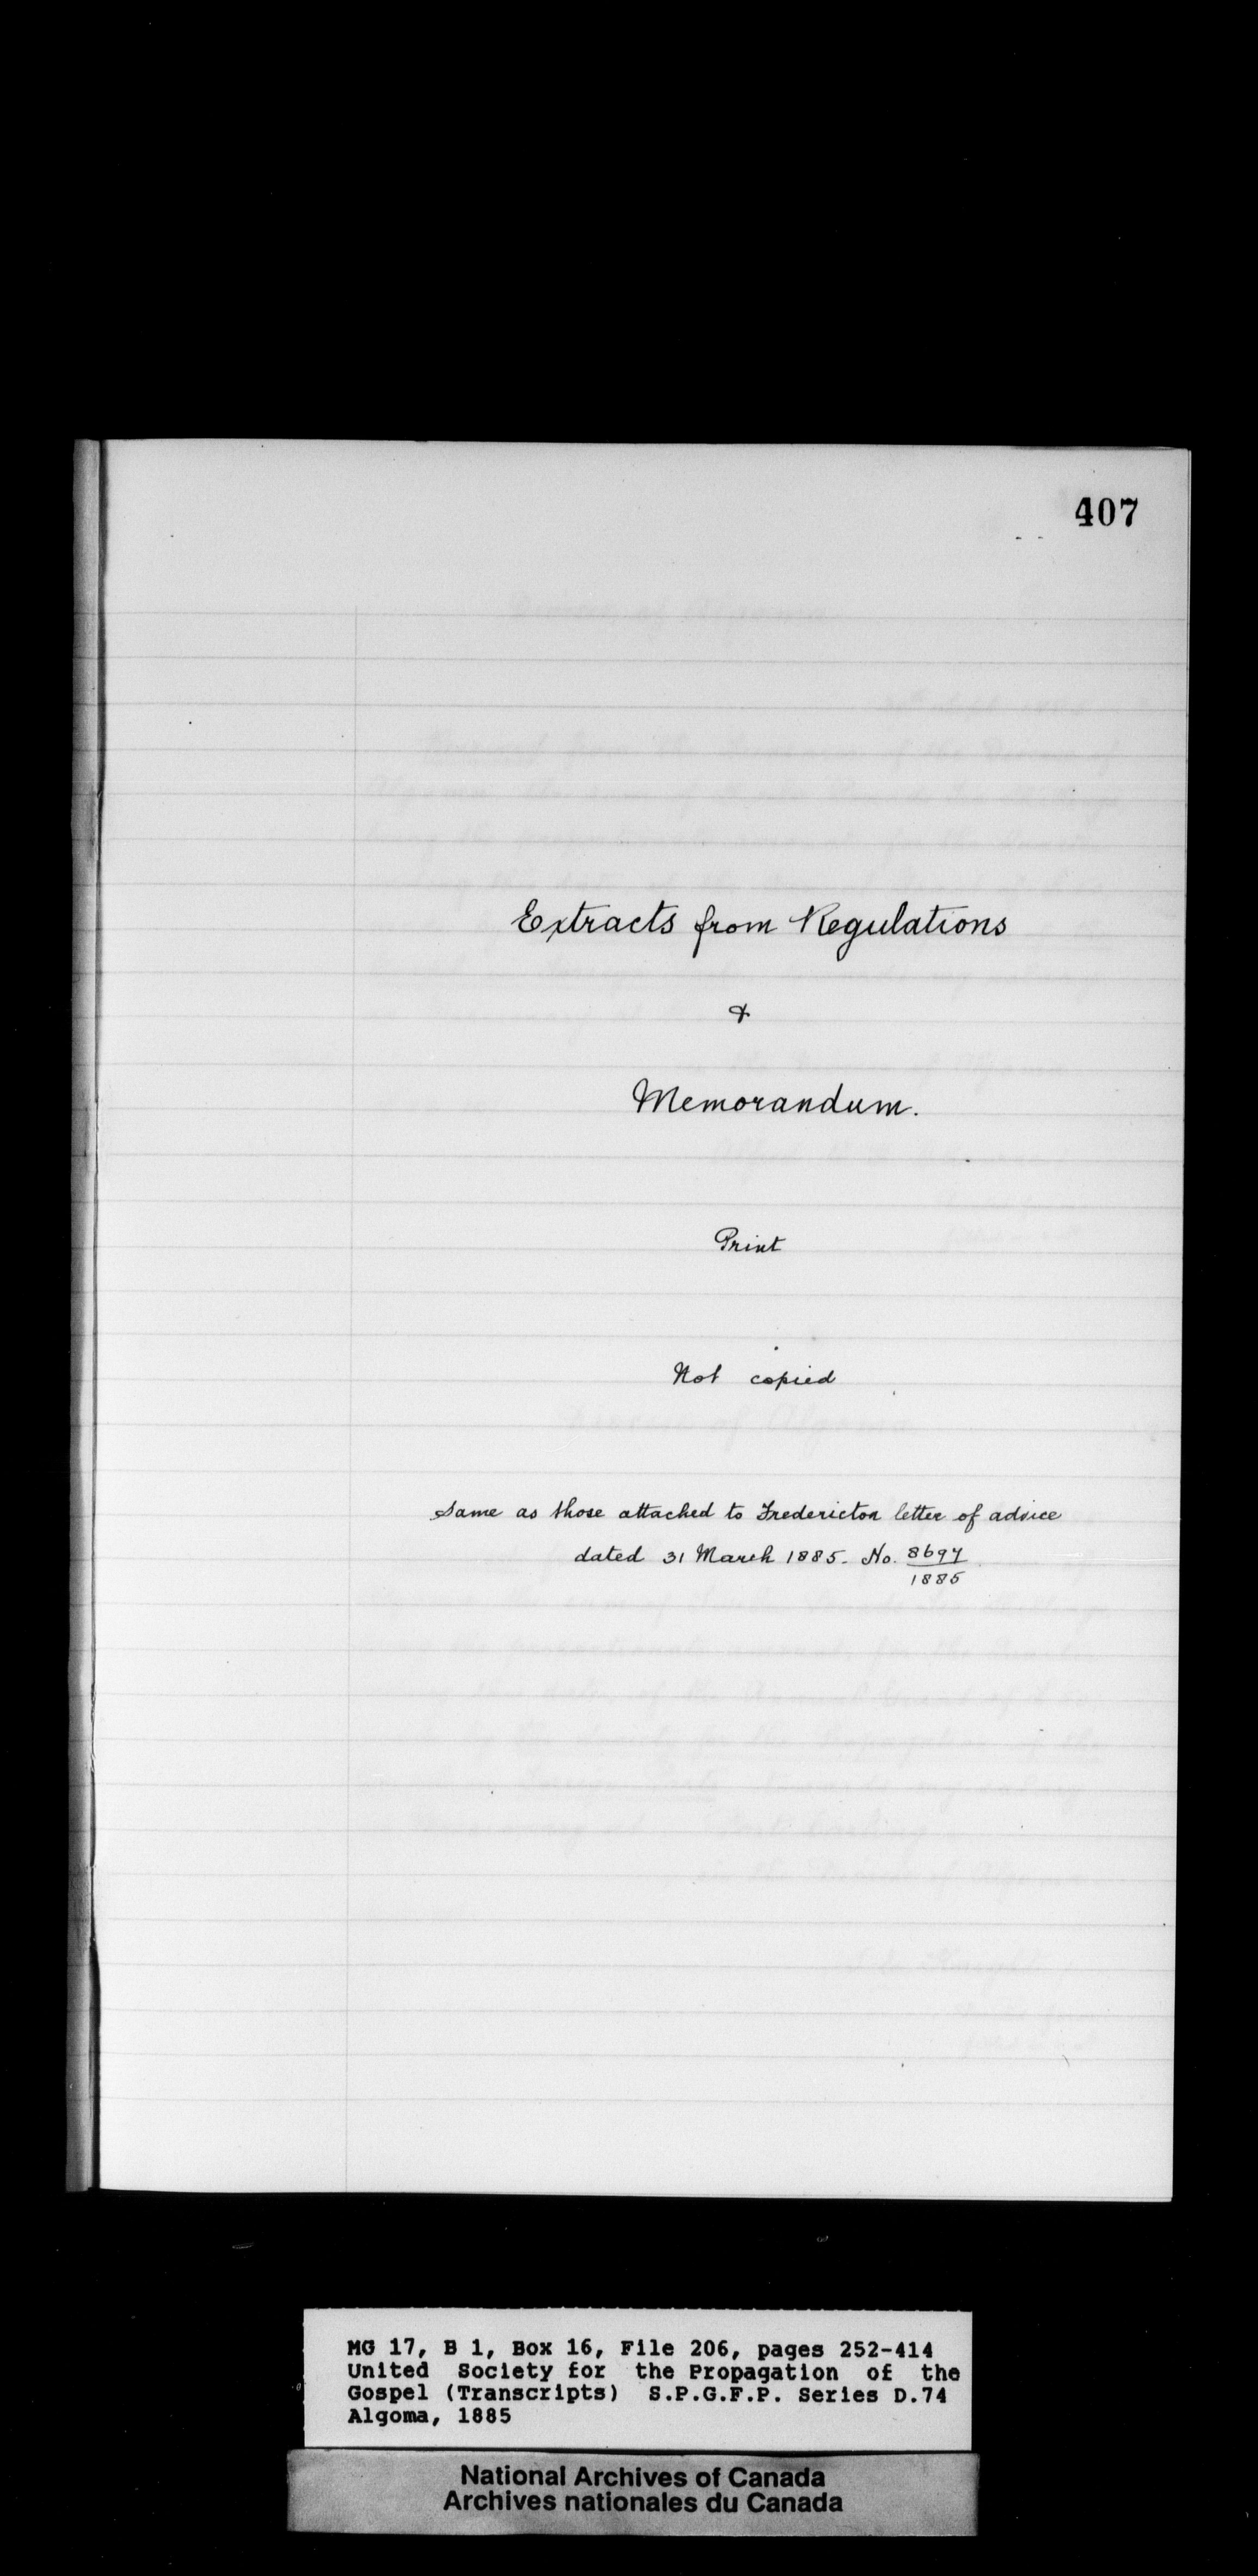 407
Extracts from Regulations
&
Memorandum.
Print
Not copied
Same as those attached to Fredericton letter of advice
dated 31 March 1885. No. 8697
1885
MG 17, B 1, Box 16, File 206, pages 252-414
United Society for the Propagation of the
Gospel (Transcripts) S.P.G.F.P. Series D.74
Algoma, 1885
National Archives of Canada
Archives nationales du Canada